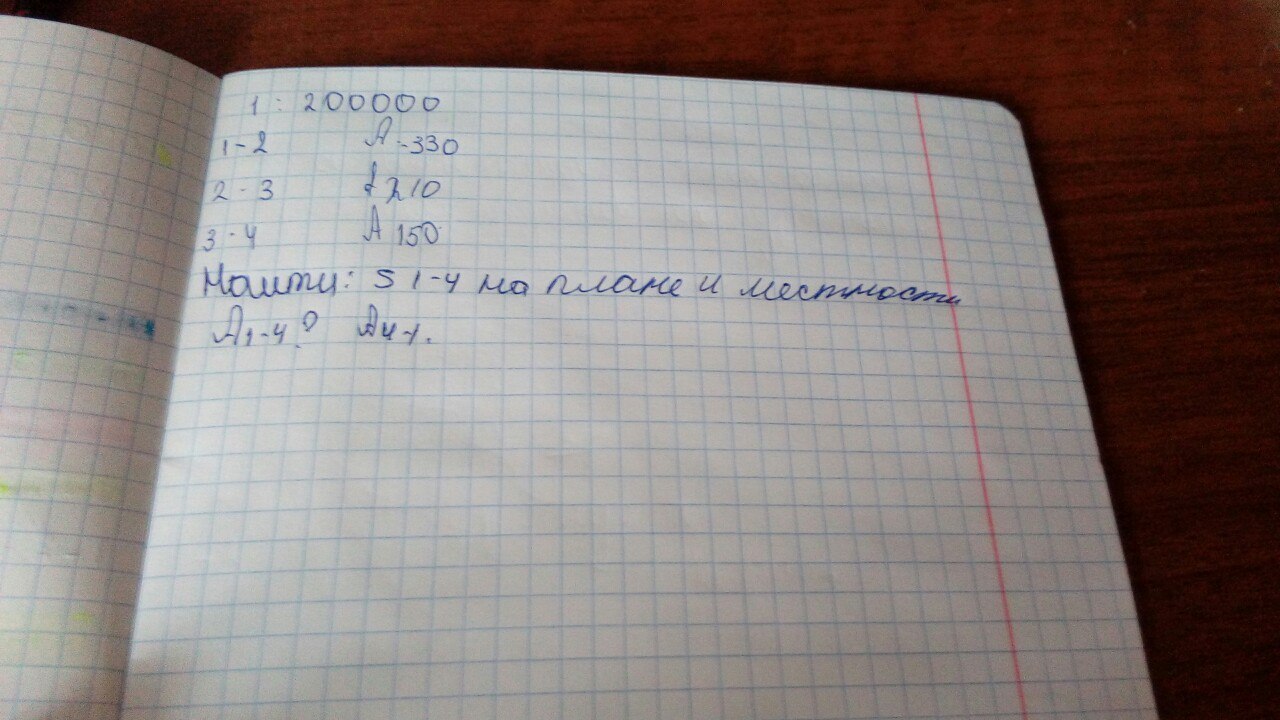 1 : 200000
1-2 A-330
2-3 A 210
3-4 A 150
Найти: S 1-4 на плане и местности
A1-4? A4-1.